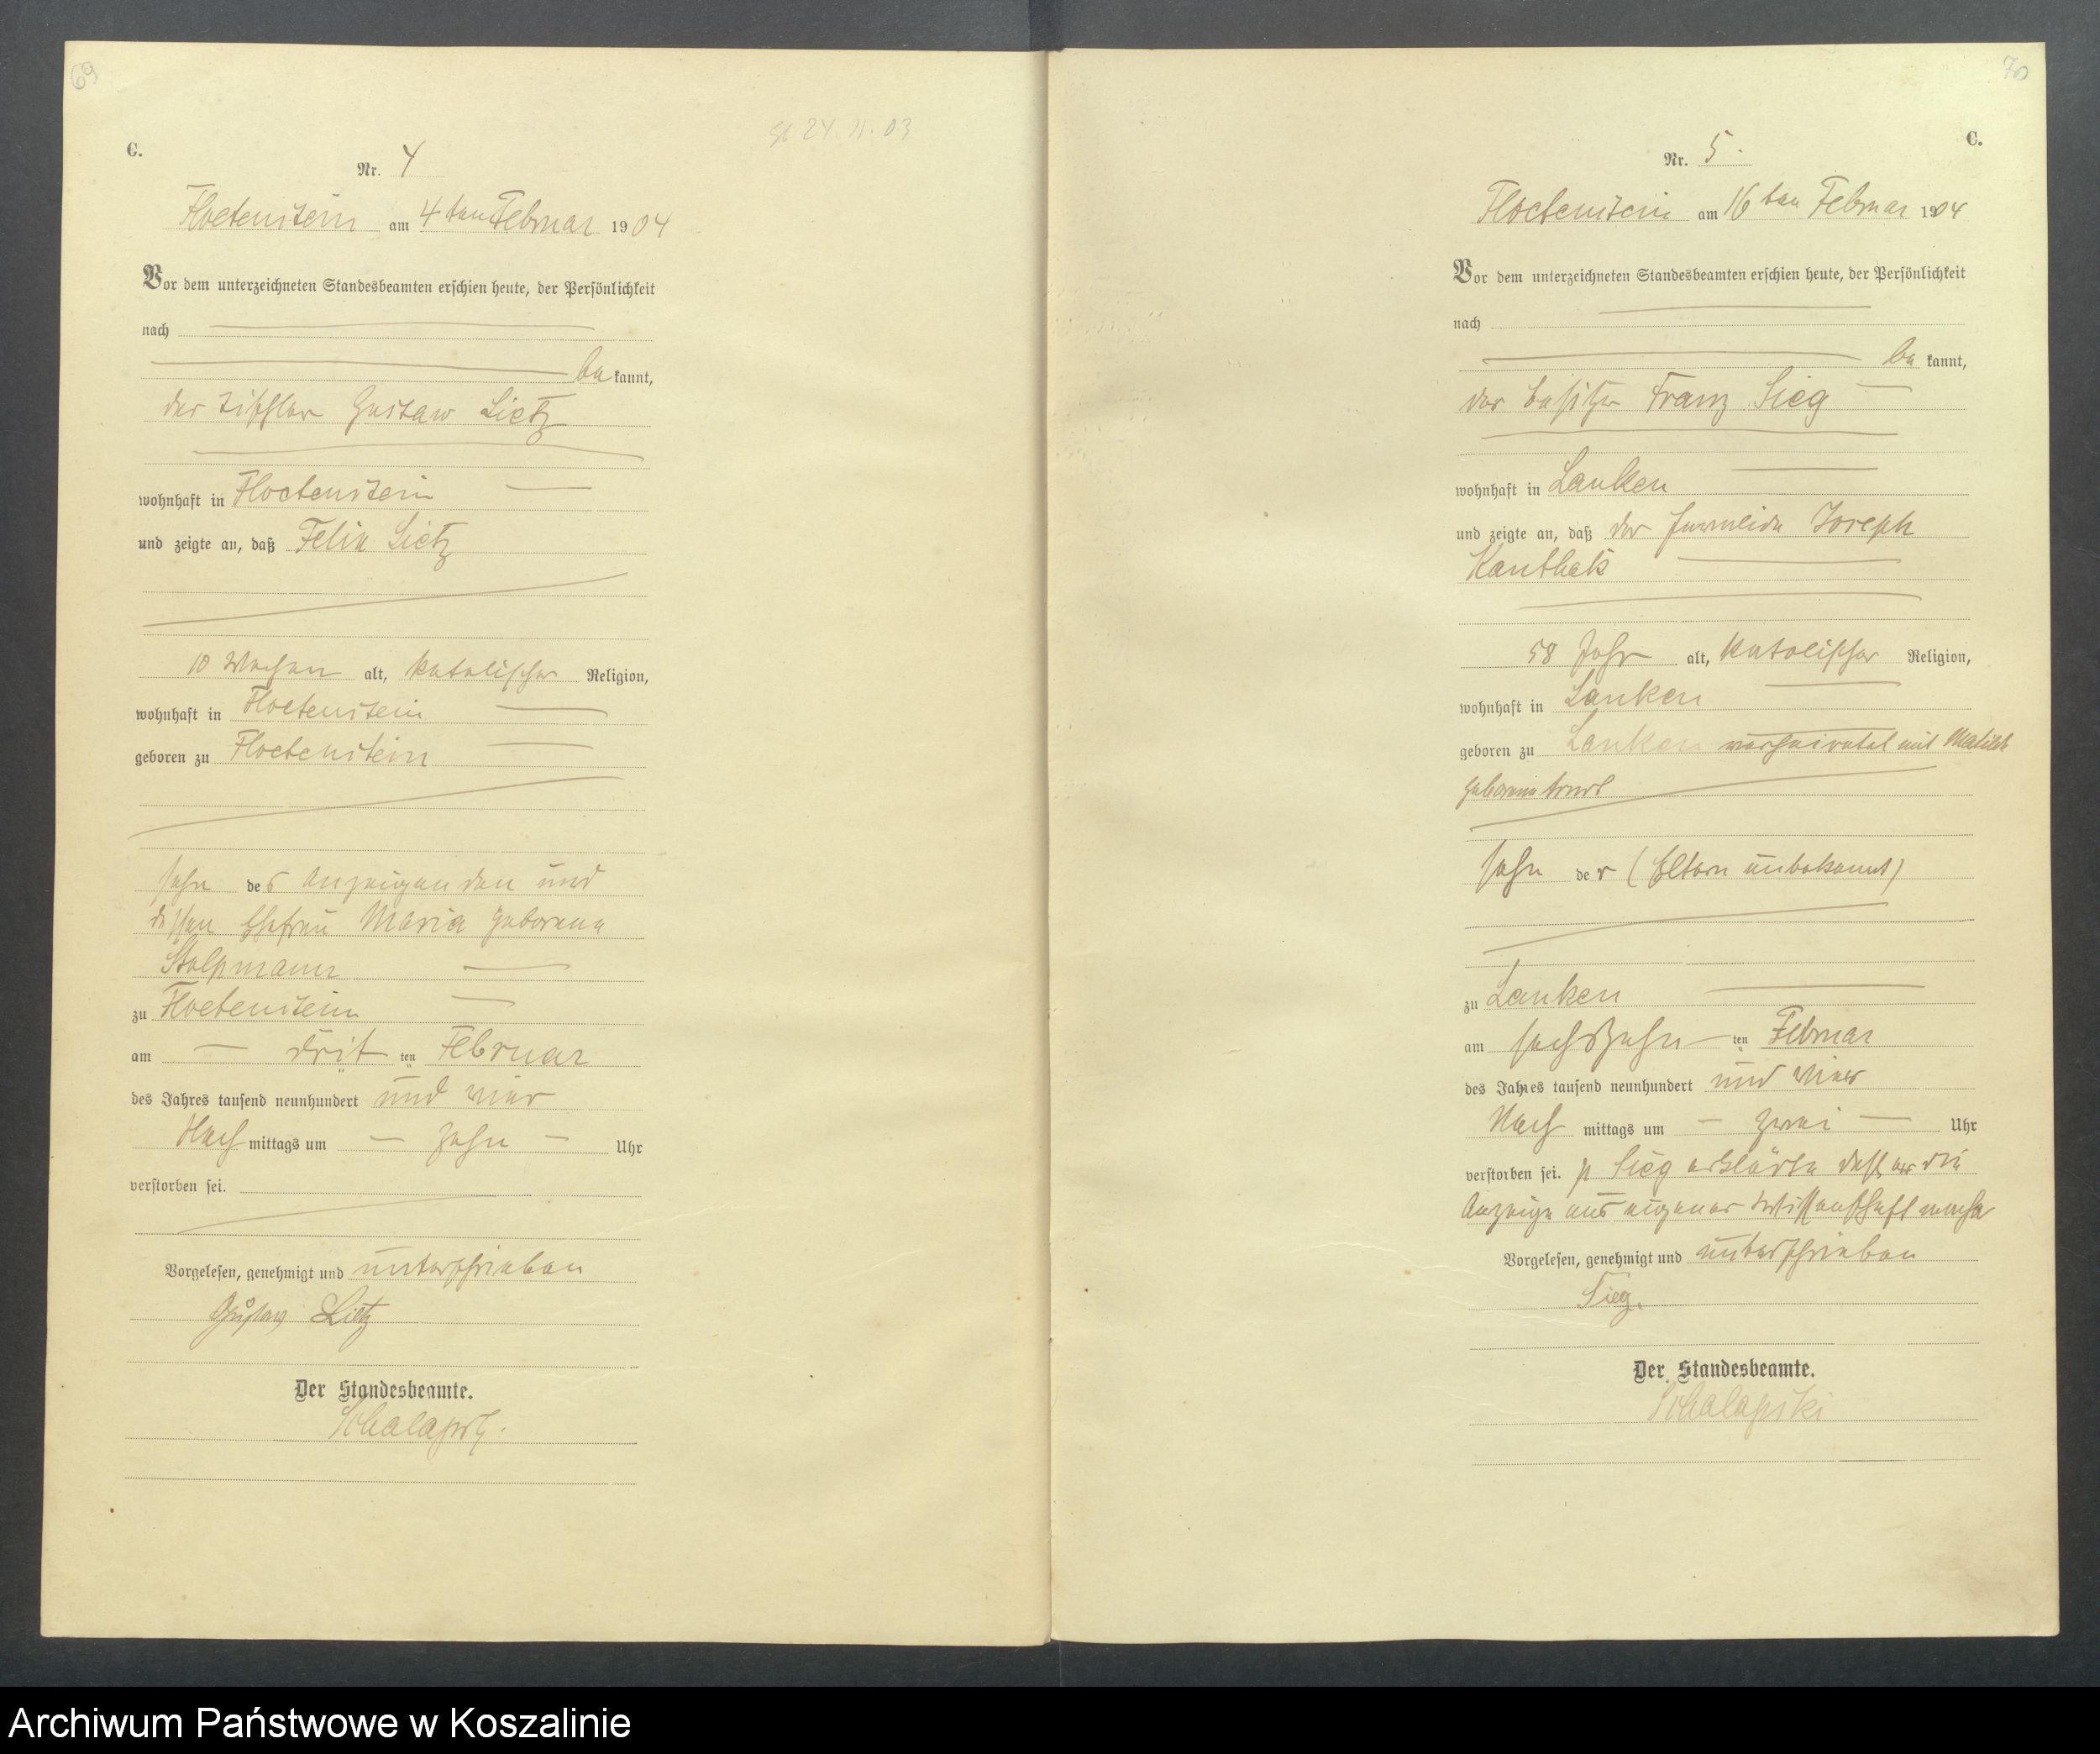 69
C.
24. 11. 03
Nr. 4
Floetenstein am 4ten Februar 1904
Vor dem unterzeichneten Standesbeamten erschien heute, der Persönlichkeit
nach
bekannt,
der Tischler Gustaw Lietz
wohnhaft in Floetenstein
und zeigte an, daß Felix Lietz
10 Wochen alt, katolischer Religion,
wohnhaft in Floetenstein
geboren zu Floetenstein
Sohn des Anzeigenden und
dessen Ehefrau Maria geborene
Stolpmann
zu Floetenstein
am drit ten Februar
des Jahres tausend neunhundert und vier
Nach mittags um zehn Uhr
verstorben sei.
Vorgelesen, genehmigt und unterschrieben
Gustav Lietz
Der Standesbeamte.
70
C.
Nr. 5.
Floetenstein am 16ten Februar 1904
Vor dem unterzeichneten Standesbeamten erschien heute, der Persönlichkeit
nach
bekannt,
der Besitzer Franz Sieg
wohnhaft in Lanken
und zeigte an, daß der Joseph
Kanthak
58 Jahr alt, katolischer Religion,
wohnhaft in Lanken
geboren zu Lanken verheiratet mit
geborene
Sohn der (Eltern unbekannt)
zu Lanken
am sechszehn ten Februar
des Jahres tausend neunhundert und vier
Nach mittags um zwei Uhr
verstorben sei. p Sieg erklärte daß er die
Anzeige aus eigener Wissenschaft mache
Vorgelesen, genehmigt und unterschrieben
Sieg.
Der Standesbeamte.
Schalapski
Archiwum Państwowe w Koszalinie